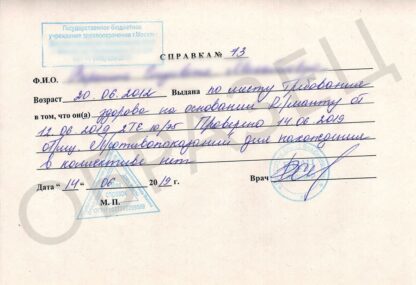 Государственное бюджетное
учреждение здравоохранения г. Москвы
СПРАВКА № 13
Ф.И.О.
Возраст 20.06.2012 Выдана по месту требования
в том, что он(а) здорова на основании Р. манту от
12.06.2019 2ТЕ Проверено 14.06.2019
Противопоказаний для нахождения
в коллективе нет.
Дата “14” 06 2019 г. Врач
М. П.
ОБРАЗЕЦ